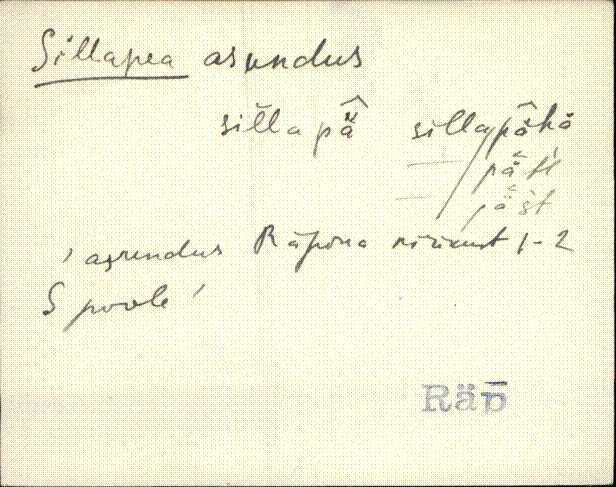 Sillapea asundus
sillapä̂ sillapä̂hä
— pä̆tl
— pä̆st
' asundus Räpina kirikust 1-2
S poole '
Räp̄